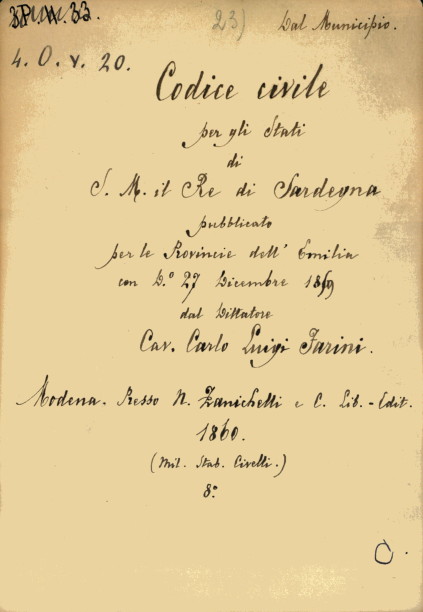 23) Dal Municipio.
4. O. v. 20.
Codice civile
per gli Stati
di
S. M. il Re di Sardegna
pubblicato
per le Provincie dell' Emilia
con D.° 27 Dicembre 1859
dal Dittatore
Cav. Carlo Luigi Farini.
Modena. Presso N. Zanichelli e C. Lib. - Edit.
1860.
(Mil. Stab. Civelli.)
8°